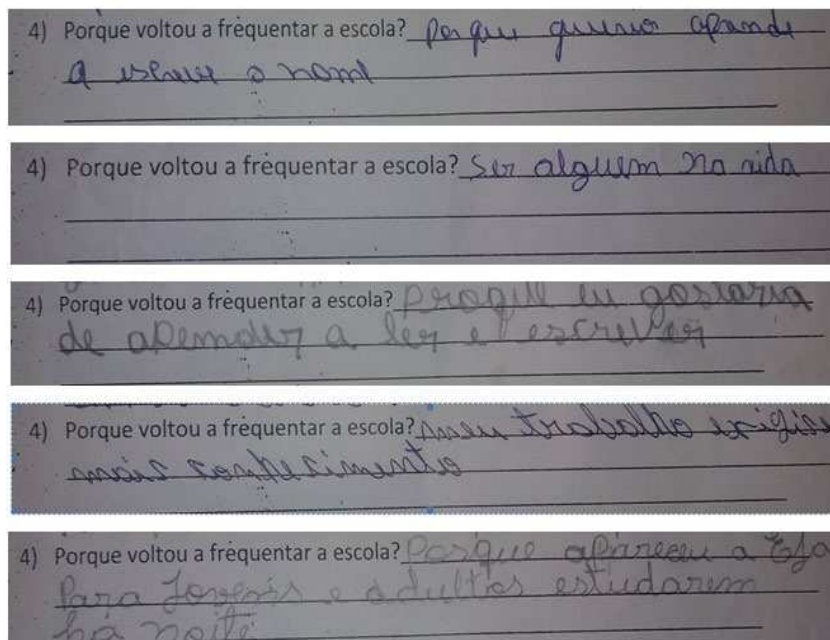 4) Porque voltou a frequentar a escola? Por que queria aprende
a escreve o nome
4) Porque voltou a frequentar a escola? Ser alguem na vida
4) Porque voltou a frequentar a escola? Proque eu gostaria
de apemder a ler e escrever
4) Porque voltou a frequentar a escola? meu trabalho exigiu
mais conhecimento
4) Porque voltou a frequentar a escola? Porque apareceu a Eja
Para Jovens e adultos estudarem
há noite